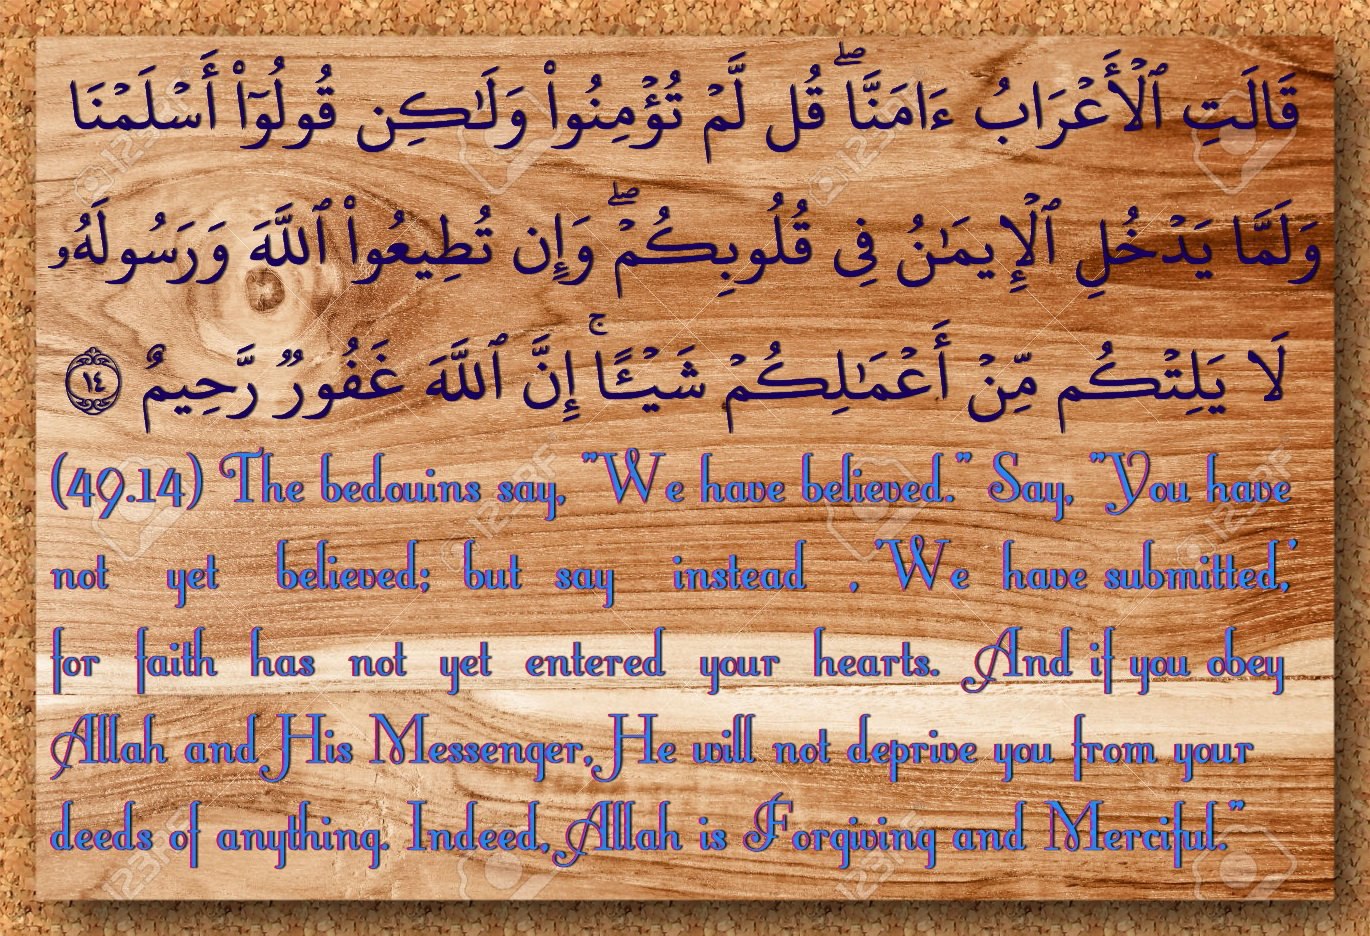 قَالَتِ ٱلْأَعْرَابُ ءَامَنَّا ۖ قُل لَّمْ تُؤْمِنُوا۟ وَلَـٰكِن قُولُوٓا۟ أَسْلَمْنَا
وَلَمَّا يَدْخُلِ ٱلْإِيمَـٰنُ فِى قُلُوبِكُمْ ۖ وَإِن تُطِيعُوا۟ ٱللَّهَ وَرَسُولَهُۥ
لَا يَلِتْكُم مِّنْ أَعْمَـٰلِكُمْ شَيْـًٔا ۚ إِنَّ ٱللَّهَ غَفُورٌ رَّحِيمٌ ١٤
(49.14) The bedouins say, "We have believed." Say, "You have
not yet believed; but say instead , 'We have submitted,'
for faith has not yet entered your hearts. And if you obey
Allah and His Messenger, He will not deprive you from your
deeds of anything. Indeed, Allah is Forgiving and Merciful."